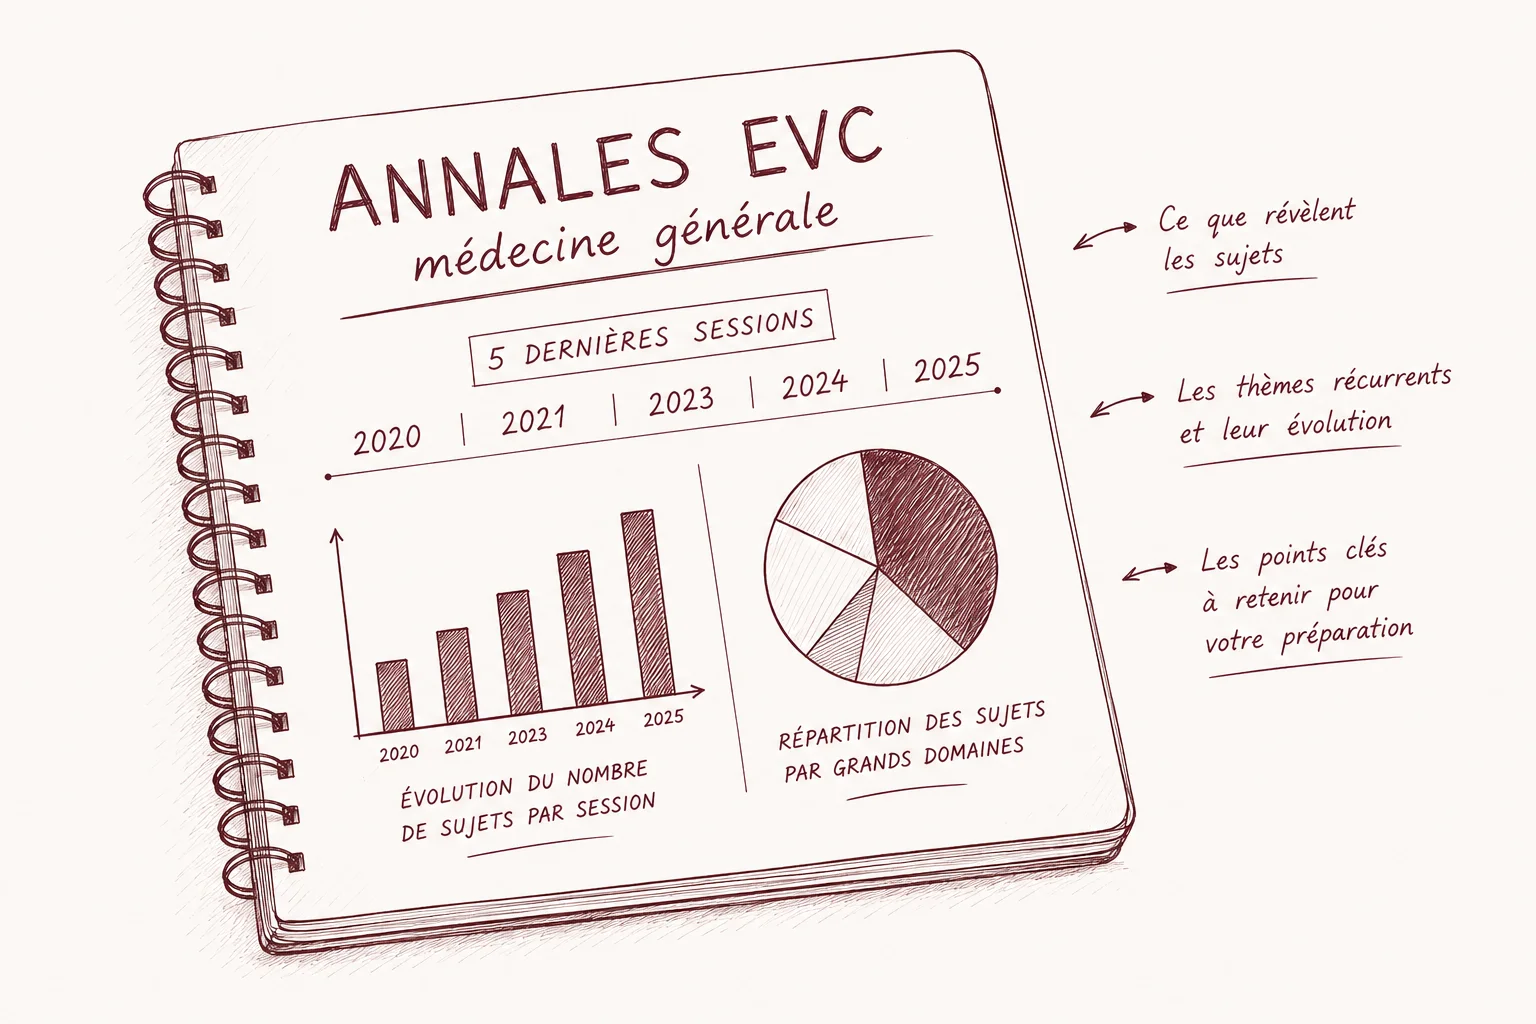 ANNALES EVC
médecine générale
5 DERNIÈRES SESSIONS
2020 | 2021 | 2023 | 2024 | 2025
2020 2021 2023 2024 2025
ÉVOLUTION DU NOMBRE
DE SUJETS PAR SESSION
RÉPARTITION DES SUJETS
PAR GRANDS DOMAINES
Ce que révèlent
les sujets
Les thèmes récurrents
et leur évolution
Les points clés
à retenir pour
votre préparation